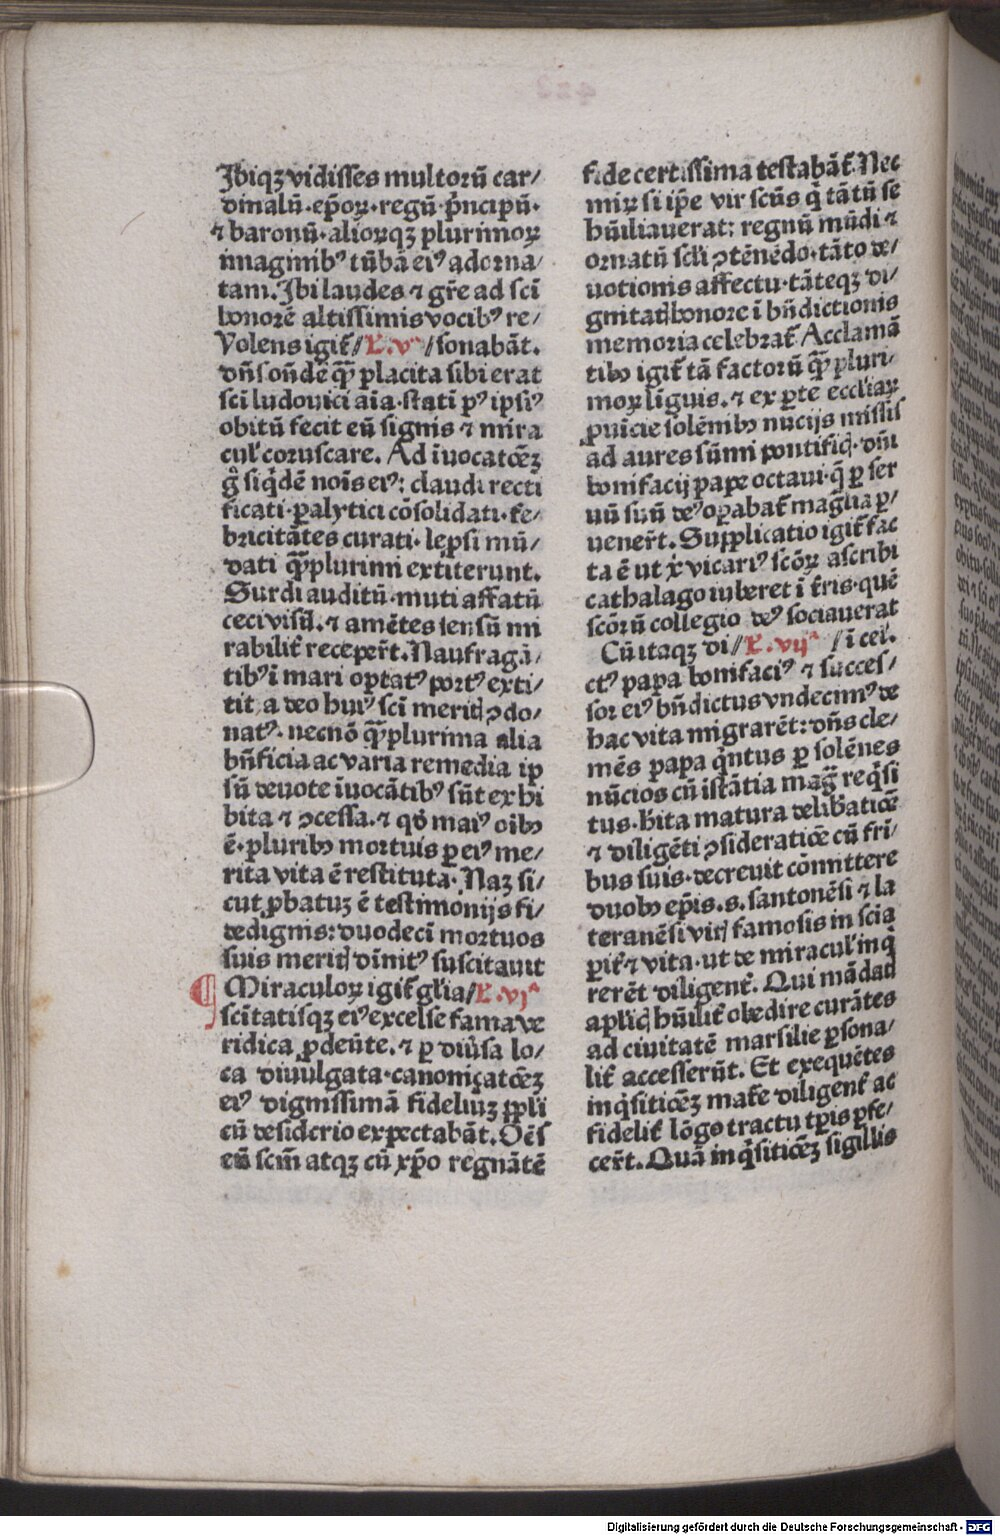 Jbiqꝫ vidisses multorū car/
dinalū·ep̄oꝝ·regū·p̄ncipū·
⁊ baronū·alioꝝqꝫ plurimoꝝ
imaginib⁹ tūbā ei⁹ adorna/
tam. Jbi laudes ⁊ gr̄e ad sc̄i
honorē altissimis vocib⁹ re/
Volens igit̄ // L. vᵃ // sonabāt.
dn̄s on̄dē q̄ꝫ placita sibi erat
sc̄i ludouici aīa·stati p⁹ ipsi⁹
obitū fecit eū signis ⁊ mira
cul' coruscare. Ad īuocatōeꝫ
g̊ siq̇dē noīs ei⁹: claudi recti
ficati·ꝑalytici cōsolidati·fe/
bricitātes curati·lep̄si mū/
dati q̄ꝫplurimi extiterunt.
Surdi auditū·muti affatū
ceci visū.⁊ amētes sensū mi
rabilit̄ recepert̄. Naufragā/
tib⁹ ī mari optat⁹ port⁹ exti/
tit a deo hui⁹ sc̄i meriꝭ ꝯdo/
nat⁹. necnō q̄ꝫplurima alia
bn̄ficia ac varia remedia ip
sū deuote īuocātib⁹ sūt exhi
bita ⁊ ꝯcessa.⁊ qd̄ mai⁹ oībꝰ
ē·pluribꝰ mortuis ꝑ ei⁹ me/
rita vita ē restituta. Naꝫ si/
cut ꝓbatuꝫ ē testimonijs fi/
dedignis: duodecī mortuos
suis meriꝭ dīnit⁹ suscitauit
¶ Miraculoꝝ igit̄ gl̄ia // L. vjᵃ
sc̄itatisqꝫ ei⁹ excelse fama ve
ridica ꝓdeūte.⁊ ꝑ diūsa lo/
ca diuulgata·canoniçatōeꝫ
ei⁹ dignissimā fideliuꝫ ppl̄i
cū desiderio expectabāt. Oēs
eū scīn atqꝫ cū xp̄o regnātē
fide certissima testabāt̄. Nec
miꝝ si ip̄e vir scūs q̇ tātū se
hūiliauerat: regnū mūdi ⁊
ornatū scl̄i ꝯtēnēdo·tāto de/
uotionis affectu·tāteqꝫ di/
gnitatꝭ honore ī bn̄dictionis
memoria celebrat̄. Acclamā
tibꝰ igit̄ tā factorū q̄ꝫ pluri/
moꝝ līguis.⁊ ex ꝑte eccl̄iaꝝ
ꝓuīcie solēnibꝰ nucijs missis
ad aures sūmi pontificꝭ·dn̄i
bonifacij pape octaui·q̄ ꝑ ser
uū suū de⁹ opabat̄ magl̄ia ꝑ/
uenert̄. Supplicatio igit̄ fac
ta ē ut x̄ vicari⁹ scōꝝ ascribi
cathalago iuberet ī t̄ris·quē
scōrū collegio de⁹ sociauerat
Cū itaqꝫ di // L. vijᵃ / ī cel'.
ct⁹ papa bonifaci⁹ ⁊ succes/
sor ei⁹ bn̄dictus vndecim⁹ de
hac vita migrarēt: dn̄s cle/
mēs papa q̇ntus ꝑ solēnes
nūcios cū istātia mag̃ req̇si
tus·hīta matura delib̄atiōe
⁊ diligēti ꝯsideratiōe cū fri/
bus suis·decreuit cōmittere
duobꝰ ep̄is.s. santonēsi ⁊ la
teranēsi viꝭ famosis in scīa
ꝑit̄ ⁊ vita·ut de miracul' inq̇
rerēt diligent̄. Qui mādatꝭ
aplicꝭ hūilit̄ obedire curātes
ad ciuitatē marsilie ꝑsona/
lit̄ accesserūt. Et exequētes
inq̇sitiōeꝫ mat̄e diligent̄ ac
fidelit̄ lōgo tractu tꝑis ꝑfe/
cert̄. Quā inq̇sitiōeꝫ sigillis
Digitalisierung gefördert durch die Deutsche Forschungsgemeinschaft - DFG